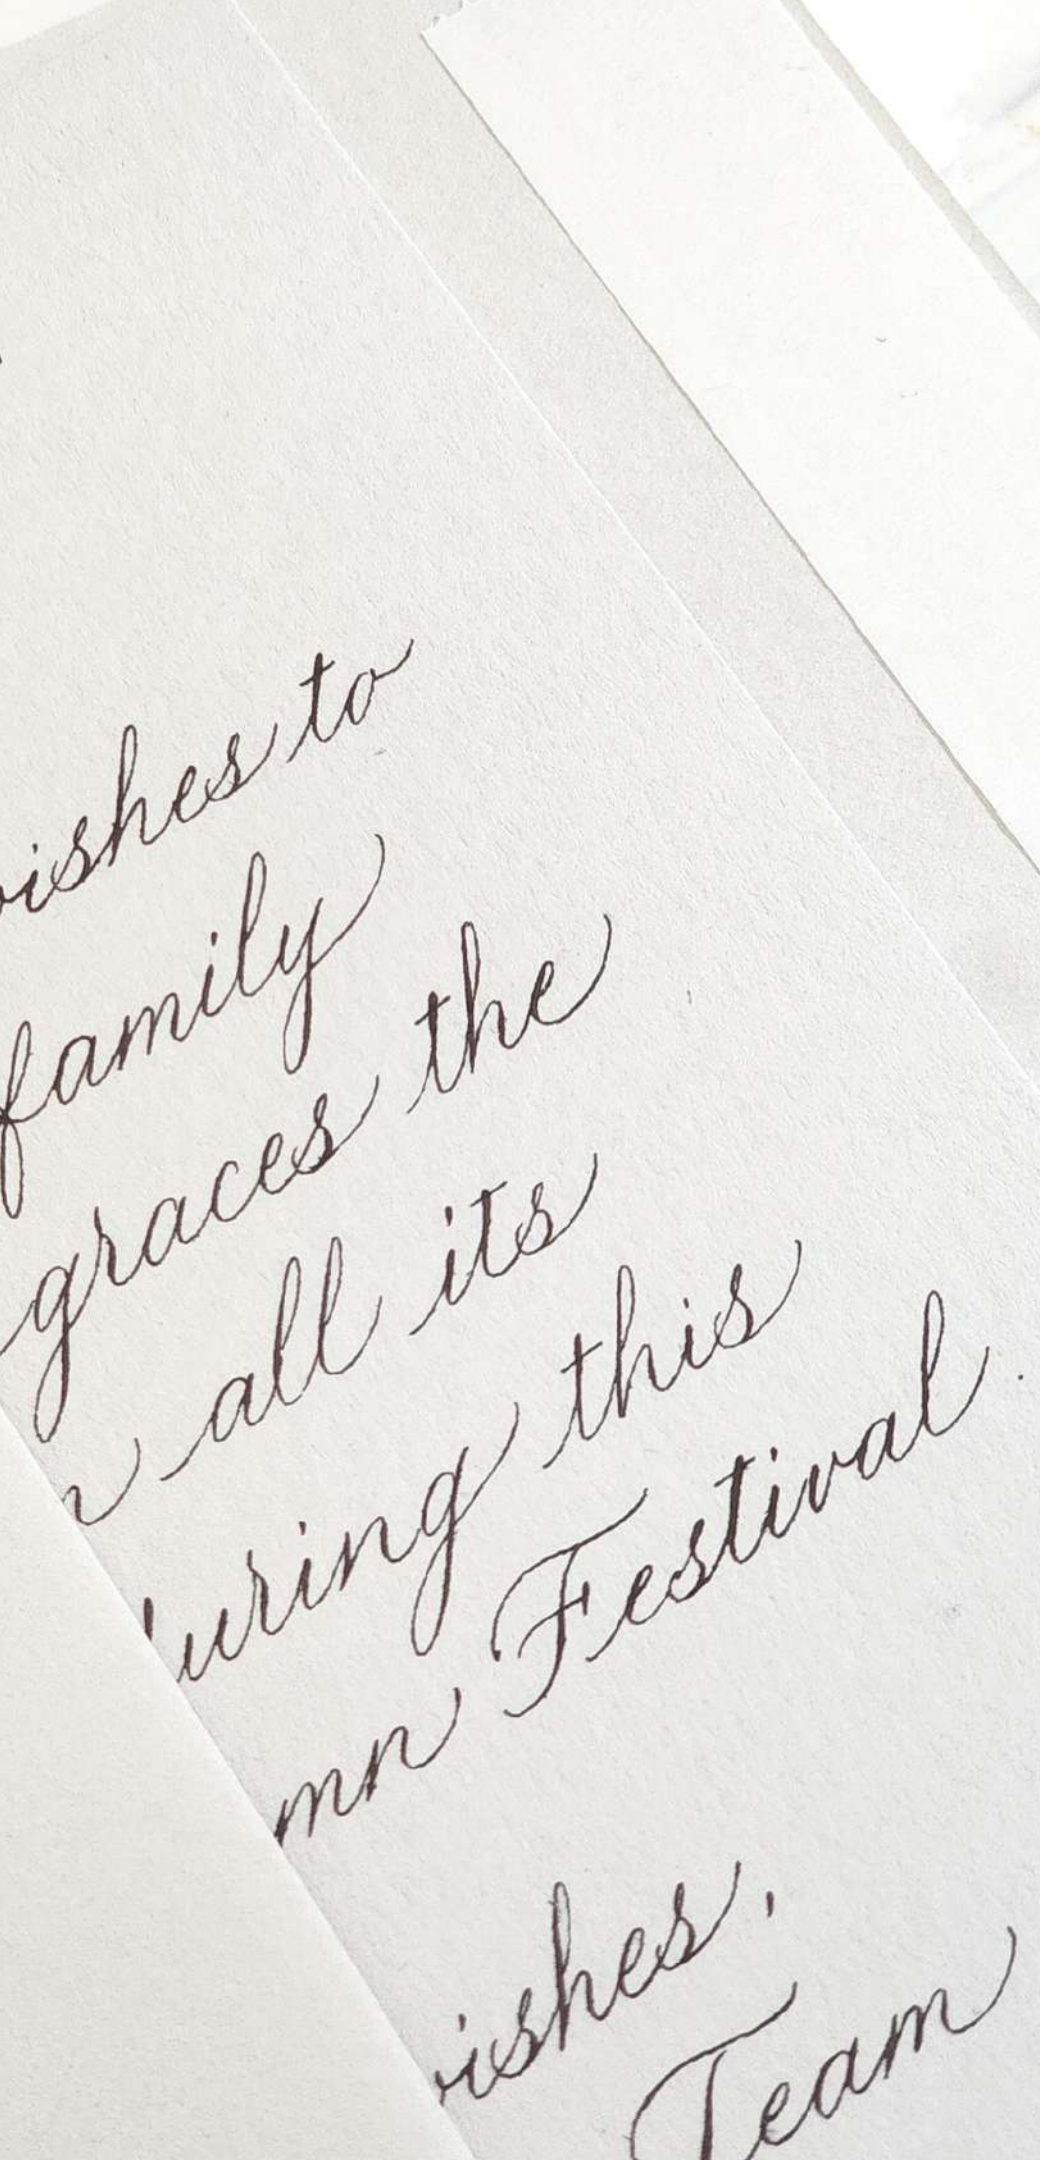 ishes to
family
graces the
all its
uring this
mn Festival.
ishes,
Team